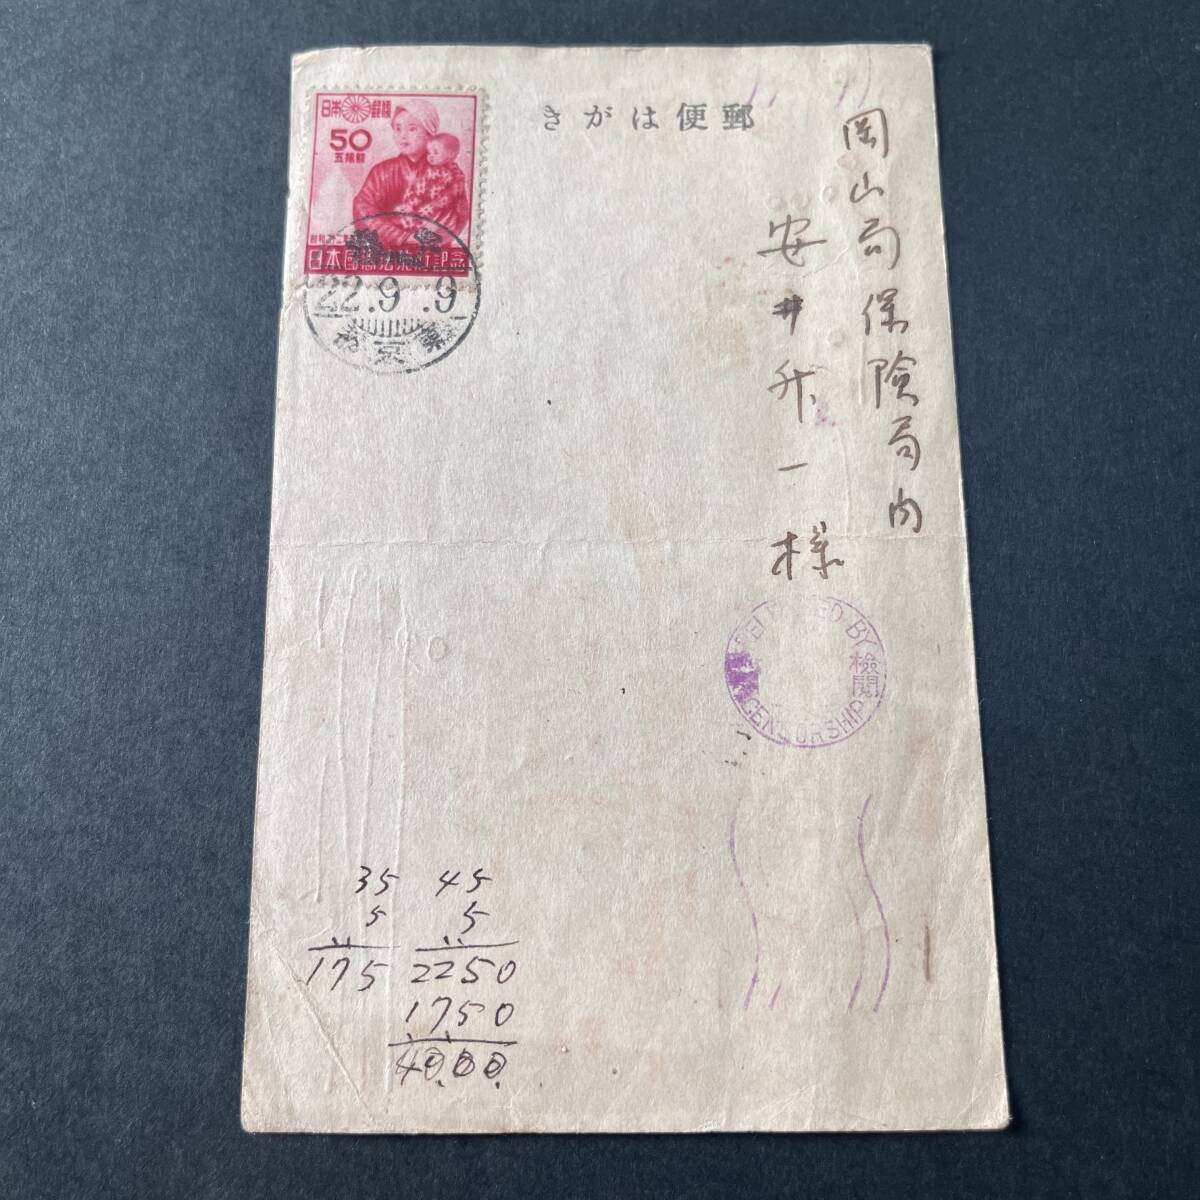 郵便はがき
日本郵便
50
五拾銭
日本國憲法施行記念
22.9.9
東京
岡山局保険局内
安井升一様
BY
検閲
CENSORSHIP
35 45
5 5
175 2250
1750
4000